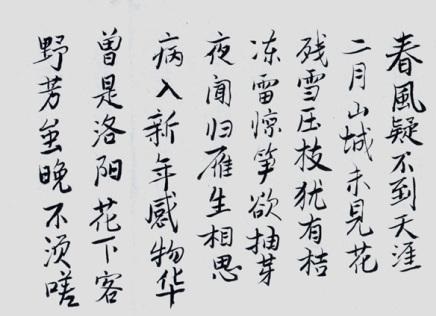 春風疑不到天涯
二月山城未見花
残雪压枝犹有桔
冻雷惊笋欲抽芽
夜闻归雁生相思
病入新年感物华
曾是洛阳花下客
野芳虽晚不须嗟